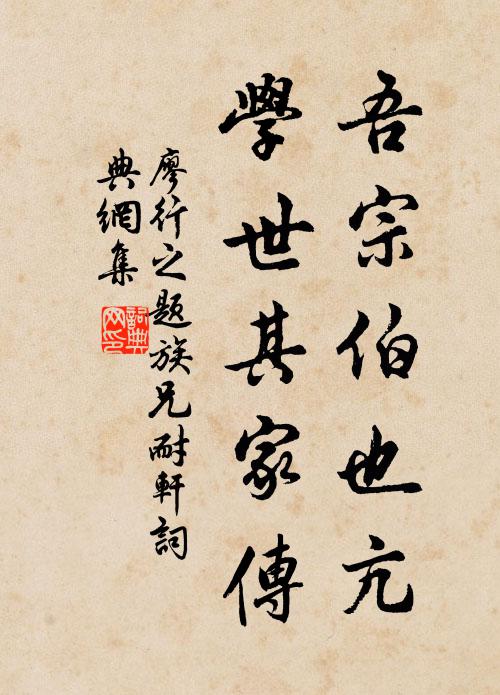 吾宗伯也亢
學世其家傳
廖行之題族兄耐軒詞
典網集
詞典网印